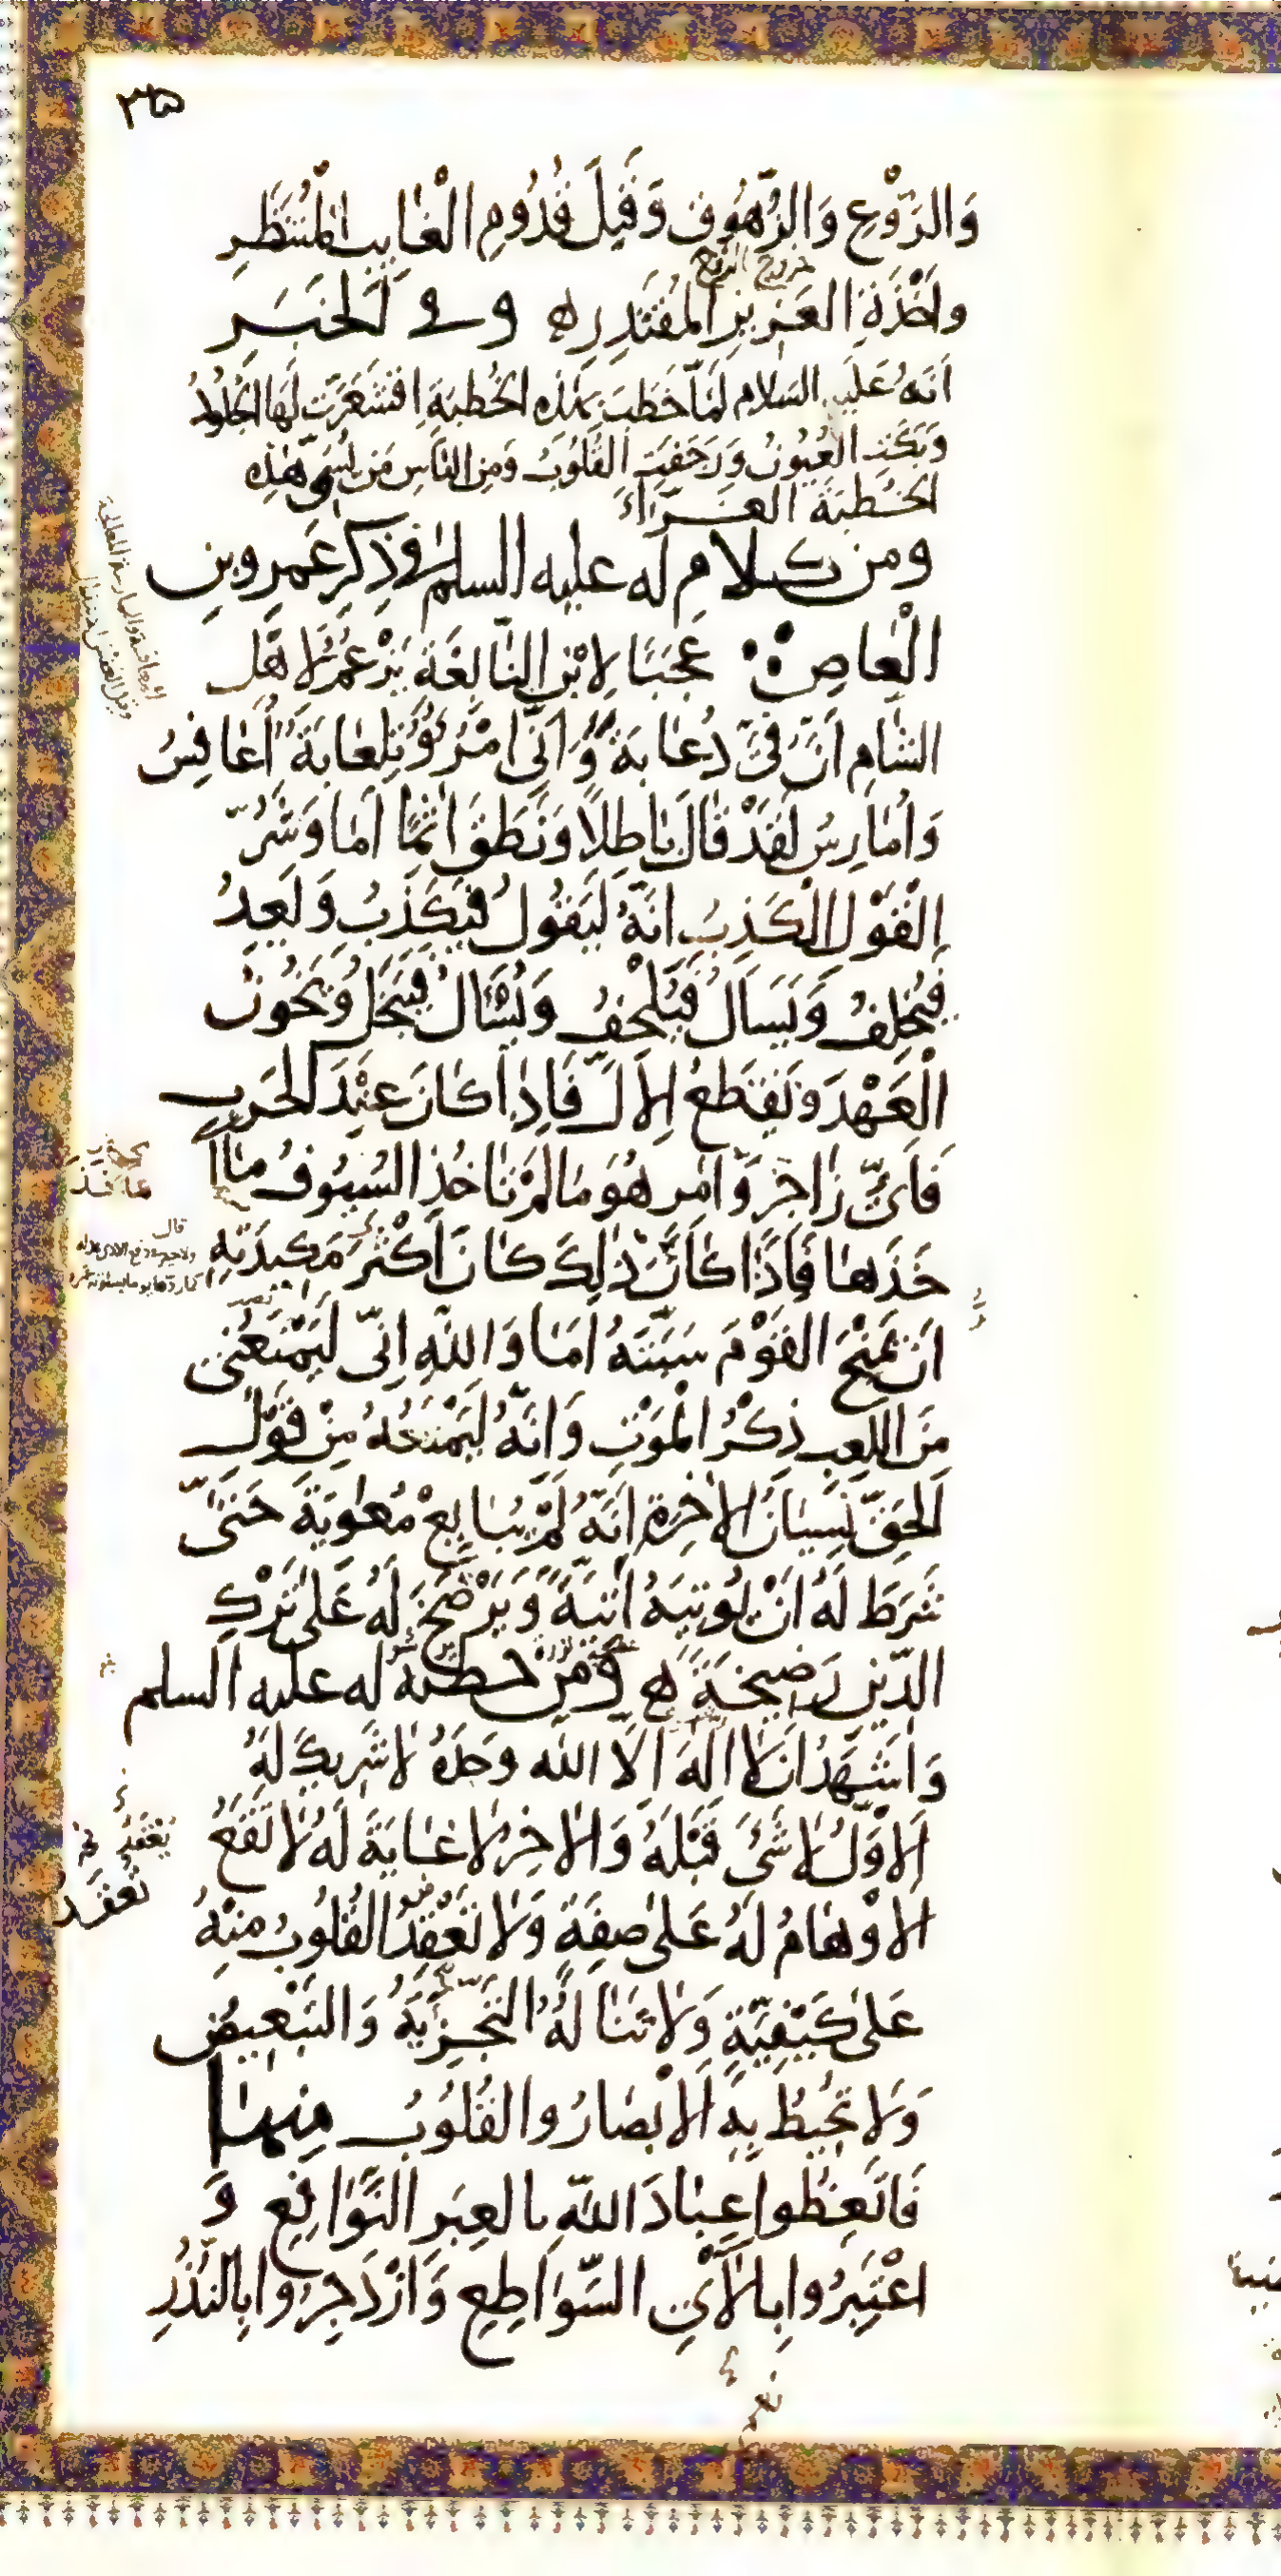 ٣٥
وَالرَّوْعِ وَالزُّهُوقِ وَقَبْلَ قُدُومِ الْغَايِبِ الْمُنْتَظَرِ
خروج الروح
وَاَخْذَةِ الْعَزِيزِ الْمُقْتَدِرِ ه وفي الْخَبَرِ
اَنَّهُ عَلَيهِ السَّلَام لَمَّا خَطَبَ بِهَذِهِ الْخُطبَةِ اقْشَعَرَّت لَهَا الْجُلُودُ
وَبَكَتِ الْعُيُونُ وَرَجَفَتِ الْقُلُوبُ وَمِنَ النَّاسِ مَن يُسَمِّي هَذِهِ
الْخُطبَةَ الغَرَّاءَ
ومن كلامٍ له عليه السلم في ذِكرِ عَمرِو بنِ
الْعاصِ عَجَبًا لِابْنِ النَّابِغَةِ يَزْعُمُ لِاَهْلِ
الشَّامِ اَنَّ فِيَّ دُعَابَةً وَّاَنِّي امْرُؤٌ تِلْعَابَةٌ اُعَافِسُ
وَاُمَارِسُ لَقَدْ قَالَ بَاطِلًا وَنَطَقَ اٰثِمًا اَمَا وَشَرُّ
الْقَوْلِ الْكَذِبُ اِنَّهُ لَيَقُولُ فَيَكْذِبُ وَيَعِدُ
فَيُخْلِفُ وَيَسأَلُ فَيُلْحِفُ وَيُسْئَالُ فَيَبْخَلُ وَيَخُونُ
الْعَهْدَ وَيَقْطَعُ الْاِلَّ فَاِذَا كَانَ عِنْدَ الْحَرْبِ
فَاَيُّ زَاجِرٍ وَّاٰمِرٍ هُوَ مَا لَمْ تَاخُذِ السُّيُوفُ مَاٰ
خَذَهَا فَاِذَا كَانَ ذٰلِكَ كَانَ اَكْثَرُ مَكِيدَتِهِ
اَنْ يَّمْنَحَ الْقَوْمَ سَبَّتَهُ اَمَا وَاللّٰهِ اِنِّي لَيَمْنَعُنِي
مِنَ اللَّعِبِ ذِكْرُ الْمَوْتِ وَاِنَّهُ لَيَمْنَعُهُ مِنْ قَوْلِ
الْحَقِّ نِسْيَانُ الْاٰخِرَةِ اِنَّهُ لَمْ يُبَايِعْ مُعٰوِيَةَ حَتّٰى
شَرَطَ لَهُ اَنْ يُّوتِيَهُ اَتِيَّةً وَّيَرْضَخَ لَهُ عَلٰى تَرْكِ
الدِّينِ رَضِيخَةً ه وَمِنْ خطبة له عليه السلم
وَاَشْهَدُ اَنْ لَا اِلٰهَ اِلَّا اللّٰه وَحْدَهُ لَا شَرِيكَ لَهُ
اَلْاَوَّلُ لَا شَيْءَ قَبْلَهُ وَالْاٰخِرُ لَا غَايَةَ لَهُ لَا تَقَعُ
الْاَوْهَامُ لَهُ عَلٰى صِفَةٍ وَلَا تَعْقِدُ الْقُلُوبُ مِنْهُ
عَلٰى كَيْفِيَّةٍ وَلَا تَنَالُهُ التَّجْزِيَةُ وَالتَّبْعِيضُ
وَلَا تُحِيطُ بِهِ الْاَبْصَارُ وَالْقُلُوبُ مِنْهَا
فَاتَّعِظُوا عِبَادَ اللّٰهِ بِالْعِبَرِ النَّوَافِعِ وَ
اعْتَبِرُوا بِالْاٰيِ السَّوَاطِعِ وَازْدَجِرُوا بِالنُّذُرِ